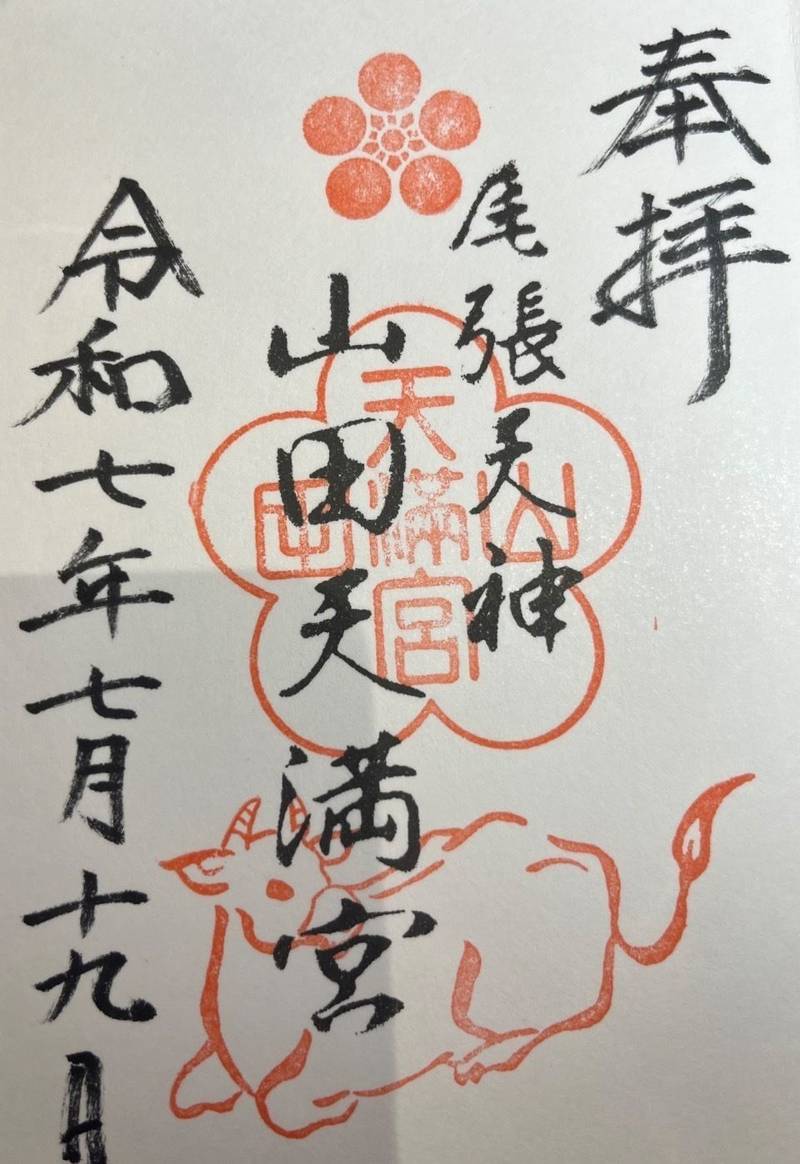 奉拝
尾張天神
山田天満宮
山田天満宮
令和七年七月十九日